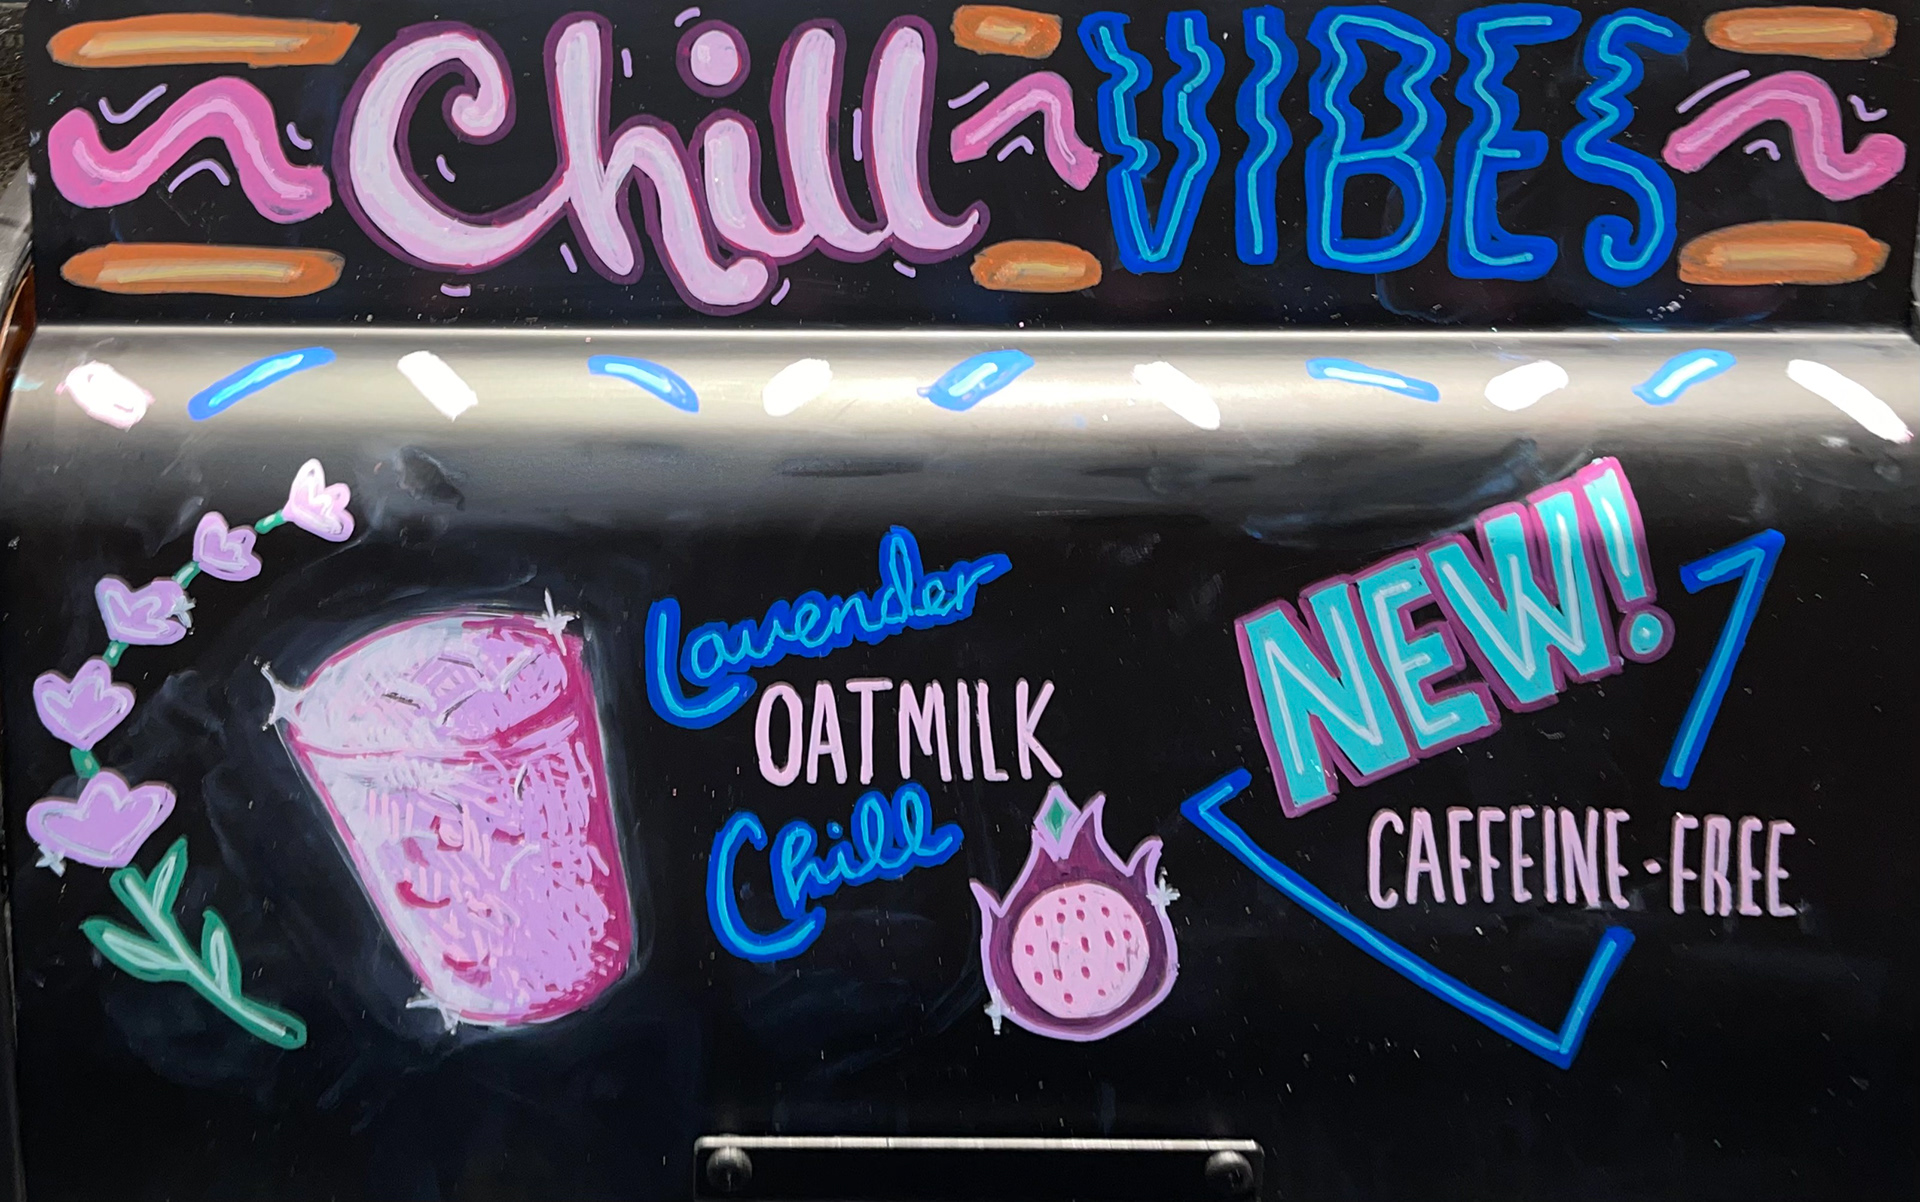 Chill VIBES
Lavender
OATMILK
Chill
NEW!
CAFFEINE-FREE